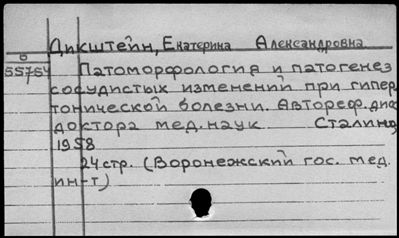 Дикштейн, Екатерина Александровна
55754 Патоморфология и патогенез
сосудистых изменений при гипер
тонической болезни. Автореф. дис
доктора мед. наук Сталино
1958
24 стр. (Воронежский гос. мед.
ин-т)